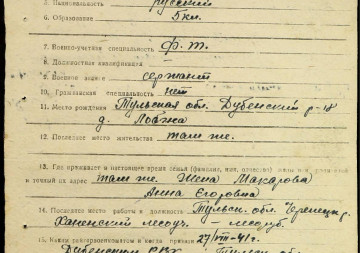 5. Национальность русский
6. Образование 5 кл.
7. Военно-учетная специальность ф. т.
8. Должностная квалификация —
9. Военное звание сержант
10. Гражданская специальность нет
11. Место рождения Тульская обл. Дубенский р-н
д. Ловжа
12. Последнее место жительства там же.
13. Где проживает в настоящее время семья (фамилия, имя, отчество)
и точный их адрес там же, Жена Макарова
Анна Егоровна
14. Последнее место работы и должность Тульск. обл. Черепецк
Ханенский лесоуч. — лесоруб.
15. Каким райвоенкоматом и когда призван 27/VIII-41 г.
Дубенским РВК, Тульск. об.